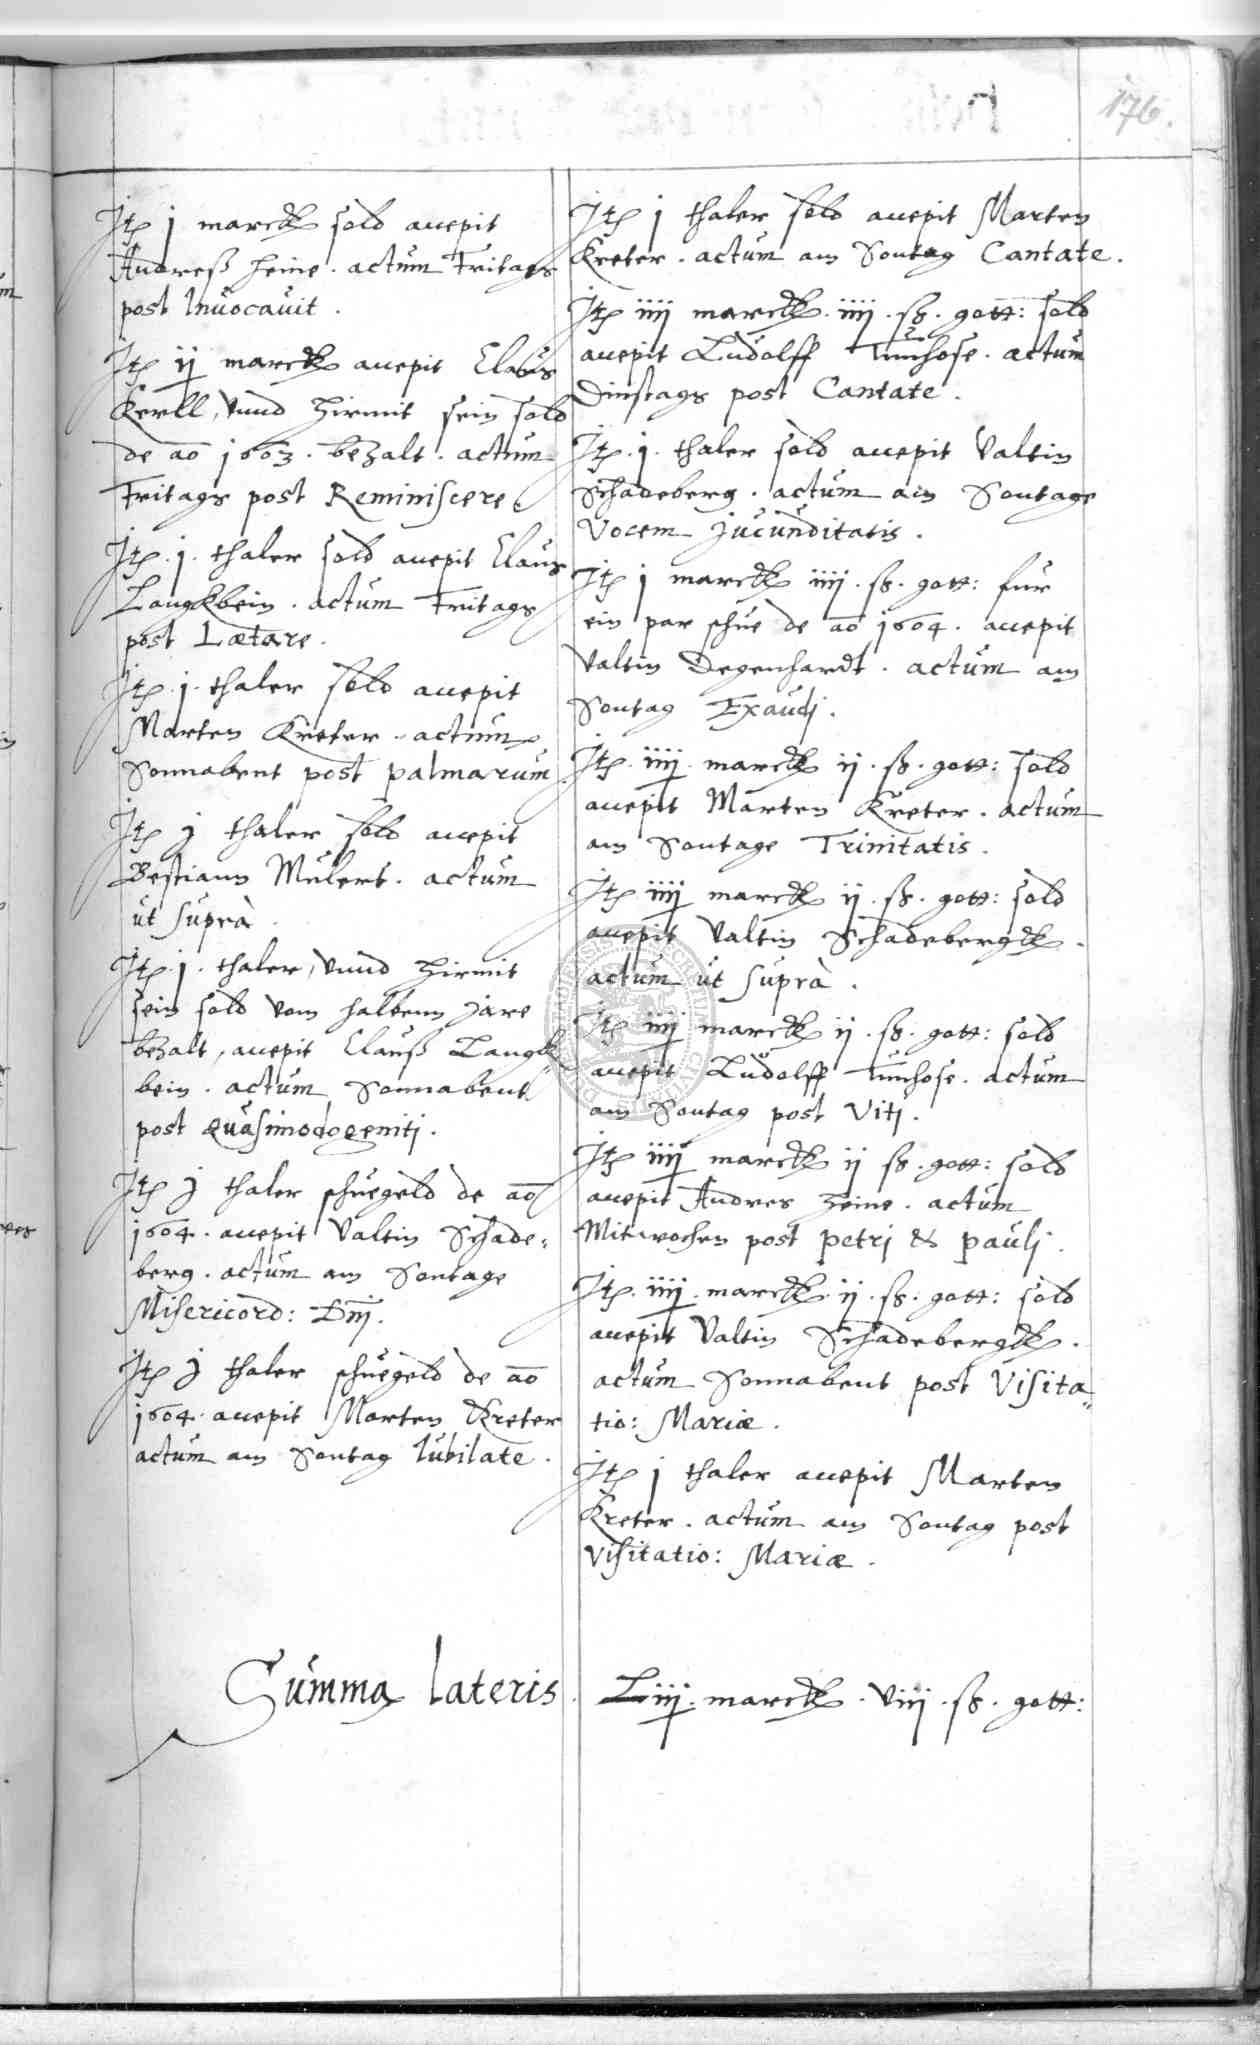 176.
Jtē j marck sold accepit
Andreß Heine. actum Fritags
post Invocavit.
Jtē ij marck accepit Claus
Kerll, vnnd hirmit sein sold
de ao 1603. bezalt. actum
Fritags post Reminiscere.
Jtē. j. thaler sold accepit Claus
Langkbein. actum Fritags
post Lætare.
Jtē. j. thaler sold accepit
Marten Kreter. actum
Sonnabent post palmarum
Jtē j thaler sold accepit
Bestiann Mulert. actum
ut suprà.
Jtē. j. thaler, vnnd hirmit
sein sold vom halbenn jare
bezalt, accepit Clauß Langk=
bein. actum Sonnabent
post Quasimodogeniti.
Jtē j thaler schuegeld de ao
1604. accepit Valtin Schade=
berg. actum am Sontage
Misericord: Dnj.
Jtē j thaler schuegeld de ao
1604. accepit Marten Kreter
actum am Sontag Iubilate.
Jtē j thaler sold accepit Marten
Kreter. actum am Sontag Cantate.
Jtē iiij marck. iiij. ß. gott: sold
accepit Ludolff Tunhose. actum
Dinstags post Cantate.
Jtē. j. thaler sold accepit Valtin
Schadeberg. actum am Sontage
Vocem Jucunditatis.
Jtē j marck iiij. ß. gott: fur
ein par schue de ao 1604. accepit
Valtin Degenhardt. actum am
Sontag Exaudj.
Jtē. iiij. marck ij. ß. gott: sold
accepit Marten Kreter. actum
am Sontage Trinitatis.
Jtē iiij marck ij. ß. gott: sold
accepit Valtin Schadebergk.
actum ut suprà.
Jtē iiij marck ij. ß. gott: sold
accepit Ludolff Tunhose. actum
am Sontag post Vitj.
Jtē iiij marck ij ß. gott: sold
accepit Andres Heine. actum
Mitwochen post petrj & paulj.
Jtē. iiij. marck. ij. ß. gott: sold
accepit Valtin Schadebergk.
actum Sonnabent post Visita=
tio: Mariæ.
Jtē j thaler accepit Marten
Kreter. actum am Sontag post
Visitatio: Mariæ.
Summa lateris. Liij. marck. viij. ß. gott: